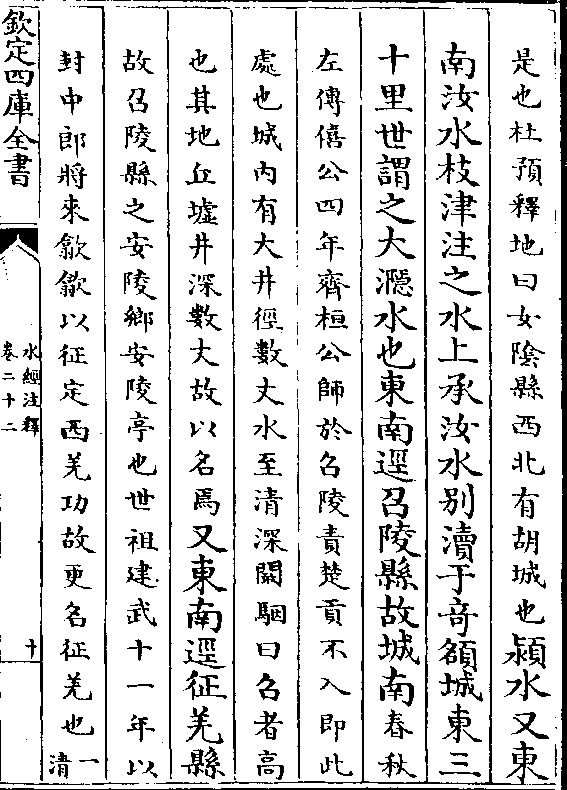 是也杜預釋地曰女陰縣西北有胡城也潁水又東
南汝水枝津注之水上承汝水别瀆于竒頟城東三
十里世謂之大㶏水也東南逕召陵縣故城南春秋
左傳僖公四年齊桓公師於召陵責楚貢不入即此
處也城内有大井徑數丈水至清深闞駰曰召者高
也其地丘墟井深數丈故以名焉又東南逕征羌縣
故召陵縣之安陵鄉安陵亭也世祖建武十一年以
封中郎將來歙歙以征定西羌功故更名征羌也一清
欽定四庫全書
水經注釋
卷二十二
十